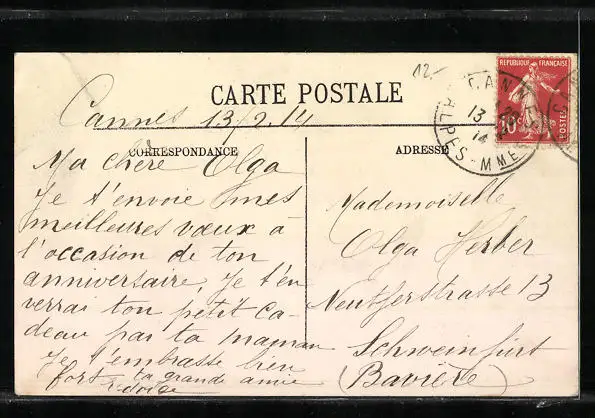 12.-
CARTE POSTALE
Cannes 13/2.14
CORRESPONDANCE
Ma chère Olga
Je t'envoie mes
meilleures vœux à
l'occasion de ton
anniversaire, Je t'en
verrai ton petit ca-
deau par ta maman
Je t'embrasse bien
fort ta grande amie
ADRESSE
Mademoiselle
Olga Herber
13
Schweinfurt
(Bavière)
REPUBLIQUE FRANÇAISE
10c
POSTES
CANNES
13
14
ALPES-MMES